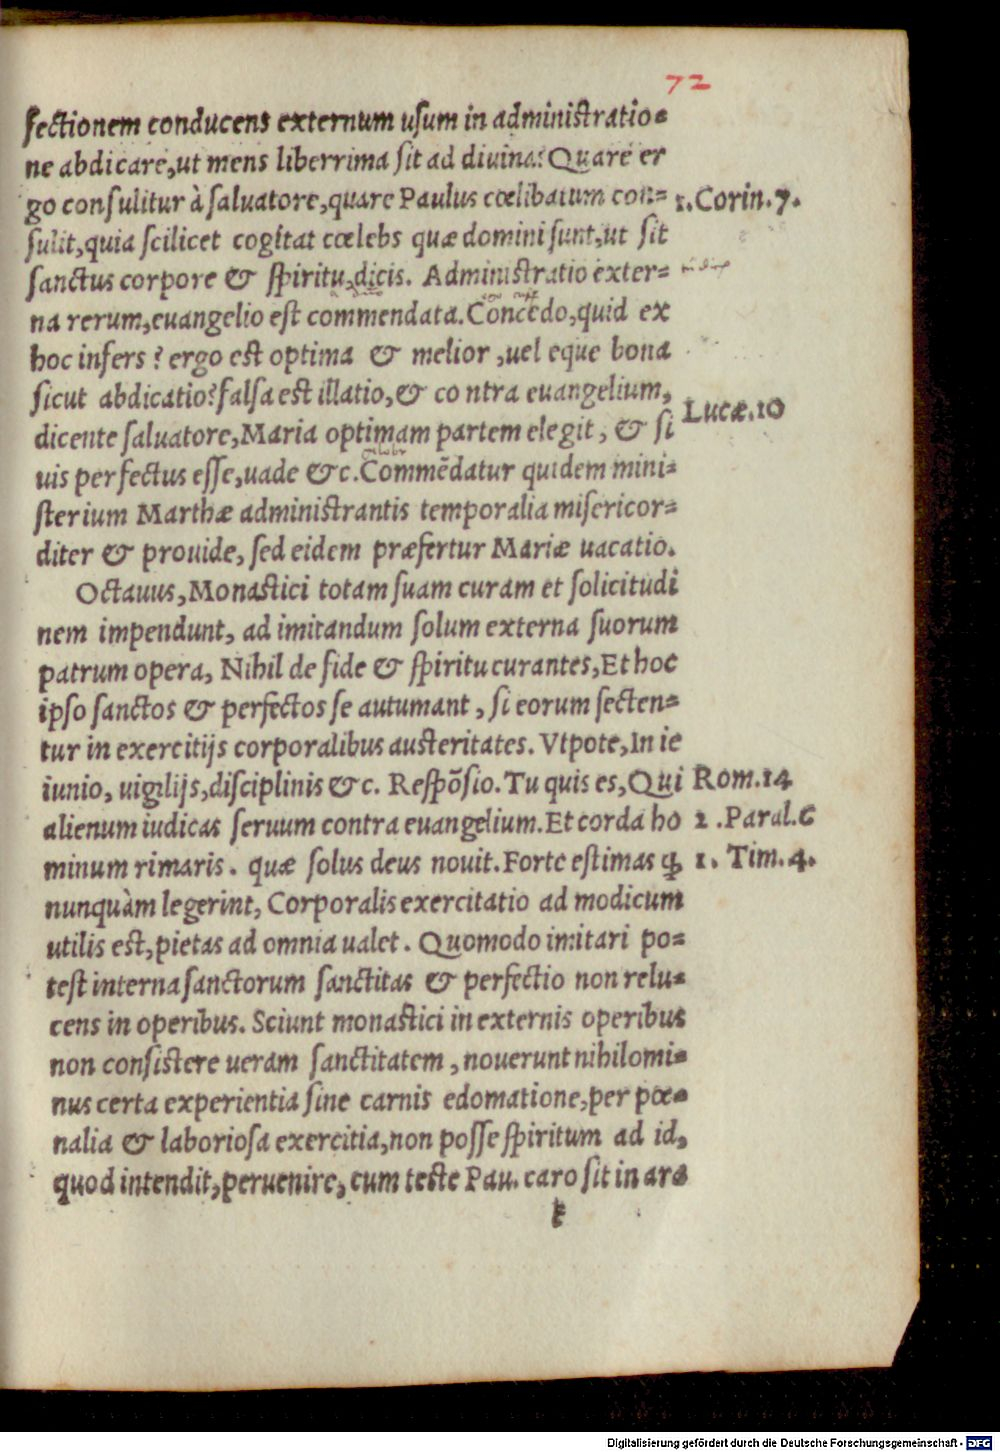 72
fectionem conducens externum usum in administratio-
ne abdicare, ut mens liberrima sit ad diuina? Quare er
go consulitur à saluatore, quare Paulus cœlibatum con- 1. Corin. 7.
sulit, quia scilicet cogitat cœlebs quæ domini sunt, ut sit
sanctus corpore & spiritu, dicis. Administratio exter-
na rerum, euangelio est commendata. Concedo, quid ex
hoc infers? ergo est optima & melior, uel eque bona
sicut abdicatio? falsa est illatio, & contra euangelium,
dicente saluatore, Maria optimam partem elegit, & si Lucæ. 10
uis perfectus esse, uade &c. Commẽdatur quidem mini-
sterium Marthæ administrantis temporalia misericor-
diter & prouide, sed eidem præfertur Mariæ uacatio.
Octauus, Monastici totam suam curam et solicitudi
nem impendunt, ad imitandum solum externa suorum
patrum opera, Nihil de fide & spiritu curantes, Et hoc
ipso sanctos & perfectos se autumant, si eorum secten-
tur in exercitijs corporalibus austeritates. Vtpote, In ie
iunio, uigilijs, disciplinis &c. Respõsio. Tu quis es, Qui Rom. 14
alienum iudicas seruum contra euangelium. Et corda ho 2. Paral. 6
minum rimaris. quæ solus deus nouit. Forte estimas ꝙ 1. Tim. 4.
nunquàm legerint, Corporalis exercitatio ad modicum
utilis est, pietas ad omnia ualet. Quomodo imitari po-
test interna sanctorum sanctitas & perfectio non relu-
cens in operibus. Sciunt monastici in externis operibus
non consistere ueram sanctitatem, nouerunt nihilomi-
nus certa experientia sine carnis edomatione, per pœ-
nalia & laboriosa exercitia, non posse spiritum ad id,
quod intendit, peruenire, cum teste Pau. caro sit in ara
k
Digitalisierung gefördert durch die Deutsche Forschungsgemeinschaft - DFG